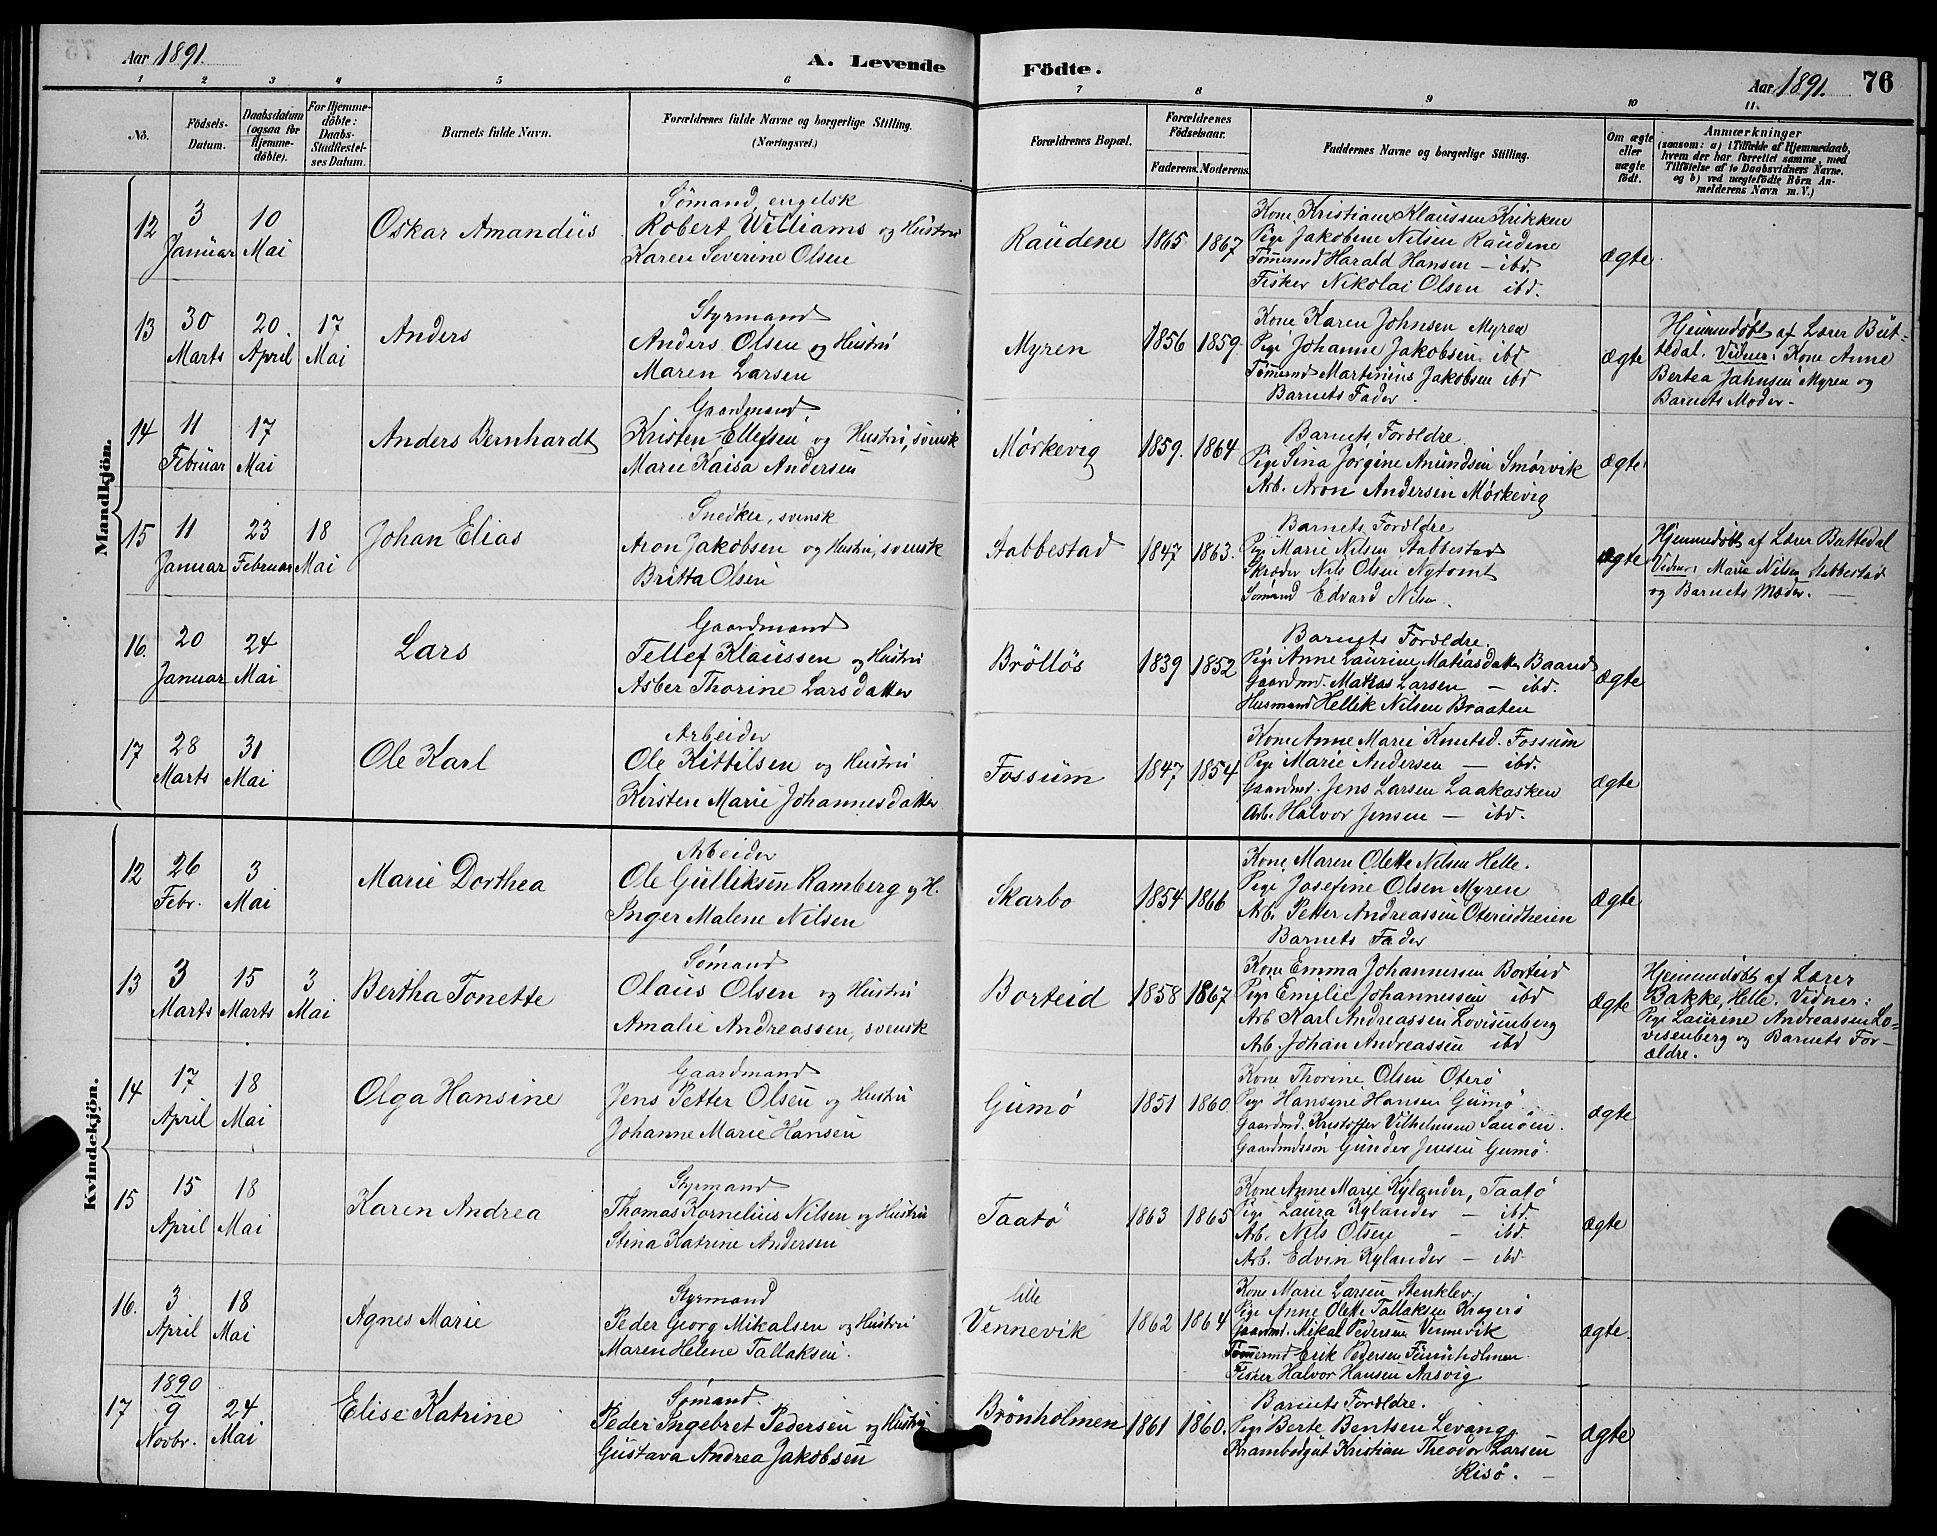 Aar 1891. A. Levende Födte. Aar 1891. 76
1 2 3 4 5 6 7 8 9 10 11.
No. Födsels-Datum. Daabsdatum (ogsaa for Hjemme-döbte). For Hjemme-döbte: Daabs-Stadfæstel-ses Datum. Barnets fulde Navn. Forældrenes fulde Navne og borgerlige Stilling. (Næringsvei.) Forældrenes Bopæl. Forældrenes Födselsaar. Faderens. Moderens. Faddernes Navne og borgerlige Stilling. Om ægte eller uægte födt. Anmærkninger (saasom: a) i Tilfælde af Hjemmedaab, hvem der har forrettet samme, med Tilföielse af to Daabsvidners Navne, og b) ved uægtefödte Börn An-melderens Navn m. V.)
Mandkjön.
12 3 Januar 10 Mai Oskar Amandus
Sømand, engelsk
Robert Williams og Hustru
Karen Severine Olsen
Raudene 1865 1867
Kone Kristiane Klaussen Krikken
Pige Jakobine Nilsen Raudene
Tømmermd Harald Hansen - ibd.
Fisker Nikolai Olsen ibd.
ægte
13 30 Marts 20 April 17 Mai Anders
Styrmand
Anders Olsen og Hustru
Maren Larsen
Myren 1856 1859.
Kone Karen Johnsen Myren
Pige Johanne Jakobsen ibd
Tømmermd Martinius Jakobsen ibd
Barnets Fader.
ægte
Hjemmedøbt af Lærer But-
tedal. Vidner: Kone Anne
Bertea Jahnsen Myren og
Barnets Moder -
14 11 Februar 17 Mai Anders Bernhardt
Gaardmand
Kristen Ellefsen og Hustru, svensk
Marie Kaisa Andersen
Mørkevig 1859. 1864
Barnets Forældre.
Pige Sina Jørgine Amundsen Smørvik
Arb. Aron Andersen Mørkevig
ægte
15 11 Januar 23 Februar 18 Mai Johan Elias
Snedker, svensk
Aron Jakobsen og Hustru, svensk
Britta Olsen
Stabbestad 1847 1863.
Barnets Forældre
Pige Marie Nilsen Stabbestad
Skræder Nils Olsen Nytomt
Sømand Edvard Nilsen.
ægte
Hjemmedøbt af Lærer Buttedal
Vidner: Marie Nilsen Stabbestad
og Barnets Moder. -
16. 20 Januar 24 Mai Lars
Gaardmand
Tellef Klaussen og Hustru
Asber Thorine Larsdatter
Brölløs 1839 1852
Barnets Forældre.
Pige Anne Laurine Matiasdatter Baand
Gaardmd. Matias Larsen - ibd.
Husmand Hellik Nilsen Braaten
ægte
17 28 Marts 31 Mai Ole Karl
Arbeider
Ole Kittilsen og Hustru
Kirsten Marie Johannesdatter
Fossum 1847 1854
Kone Anne Marie Knutsd. Fossum
Pige Marie Andersen - ibd.
Gaardmd. Jens Larsen Laakasken
Arb. Halvor Jensen - ibd.
ægte
Kvindekjön.
12 26 Febr. 3 Mai Marie Dorthea
Arbeider
Ole Gulliksen Ramberg og H.
Inger Malene Nilsen
Skarbo 1854 1866
Kone Maren Olette Nilsen Helle.
Pige Josefine Olsen Myren
Arb. Petter Andreassen Htereidheien
Barnets Fader
ægte
13 3 Marts 15 Marts 3 Mai Bertha Tonette
Sømand
Olaus Olsen og Hustru
Amalie Andreassen, svensk
Borteid 1858 1867
Kone Emma Johannessen Borteid
Pige Emilie Johannessen ibd
Arb Karl Andreassen Lovisenberg
Arb. Johan Andreassen ibd
ægte
Hjemmedøbt af Lærer
Bakke, Helle. Vidner:
Pige Laurine Andreassen Lo-
visenberg og Barnets For-
ældre.
14 17 April 18 Mai Olga Hansine
Gaardmand
Jens Petter Olsen og Hustru
Johanne Marie Hansen
Gumö 1851 1860.
Kone Thorine Olsen Oterö
Pige Hansine Hansen Gumö
Gaardmd. Kristoffer Vilhelmsen Sauöen.
Gaardmdssön Gunder Jensen Gumö.
ægte
15 15 April 18 Mai Karen Andrea
Styrmand
Thomas Kornelius Nilsen og Hustru
Stina Katrine Andersen
Taatö 1863 1865
Kone Anne Marie Kylander, Taatö
Pige Laura Kylander - ibd.
Arb. Nils Olsen - ibd.
Arb. Edvin Kylander - ibd
ægte
16. 3 April 18 Mai Agnes Marie
Styrmand
Peder Georg Mikalsen og Hustru
Maren Helene Tallaksen.
lille
Vennevik 1862 1864
Kone Marie Larsen Stenklev
Pige Anne Olette Tallaksen Kragerö
Gaardmd. Mikal Pedersen Vennevik
Tømmermd Erik Pedersen Furuholmen
Fisker Halvor Hansen Aasvig
ægte.
17 1890 9 Novbr. 24 Mai Elise Katrine
Sømand.
Peder Ingebret Pedersen og Hustru
Gustava Andrea Jakobsen
Brönholmen 1861 1860.
Barnets Forældre.
Pige Berte Bentsen Levang
Krambodgut Kristian Theodor Larsen
Risö. -
ægte